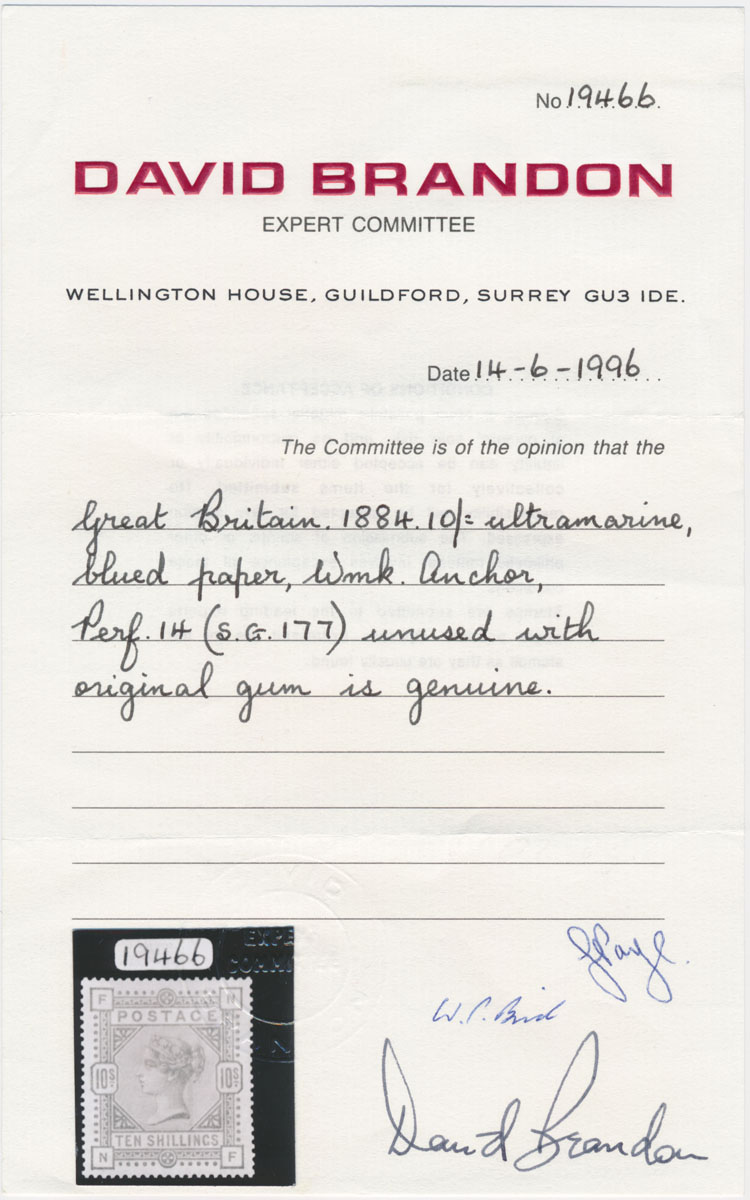 No 19466
DAVID BRANDON
EXPERT COMMITTEE
WELLINGTON HOUSE, GUILDFORD, SURREY GU3 IDE.
Date 14-6-1996
The Committee is of the opinion that the
Great Britain. 1884. 10/= ultramarine,
blued paper, Wmk. Anchor,
Perf. 14 (S.G. 177) unused with
original gum is genuine.
19466
F N
POSTAGE
10S 10S
TEN SHILLINGS
N F
W.P. Bird
David Brandon